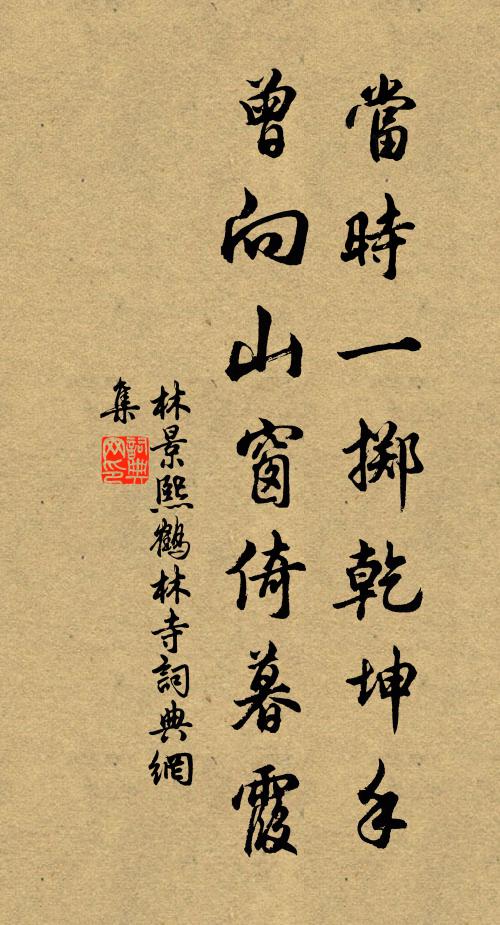 當時一擲乾坤手
曾向山窗倚暮霞
林景熙鶴林寺詞典網
集
詞典網印